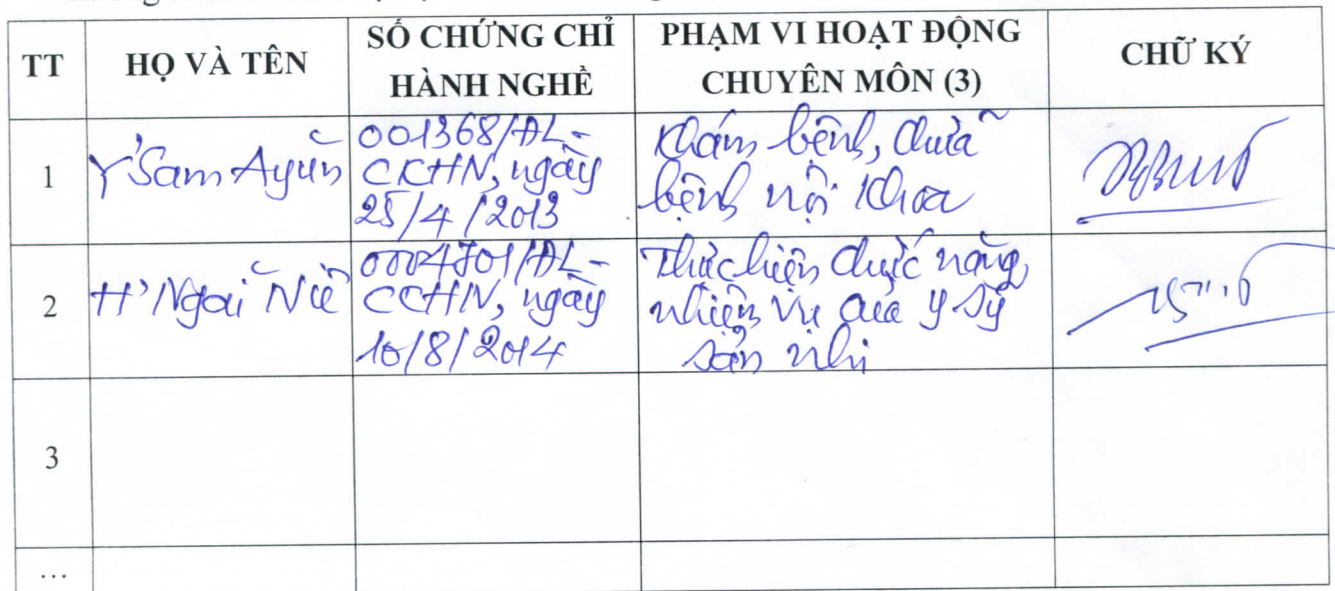 TT
HỌ VÀ TÊN
SỐ CHỨNG CHỈ
HÀNH NGHỀ
PHẠM VI HOẠT ĐỘNG
CHUYÊN MÔN (3)
CHỮ KÝ
1
Y'Sam Ayŭn
001368/ĐL-
CCHN, ngày
25/4/2013
Khám bệnh, chữa
bệnh nội khoa
2
H'Ngai Niê
0004701/ĐL-
CCHN, ngày
10/8/2014
Thực hiện chức năng,
nhiệm vụ của y sỹ
sản nhi
3
...